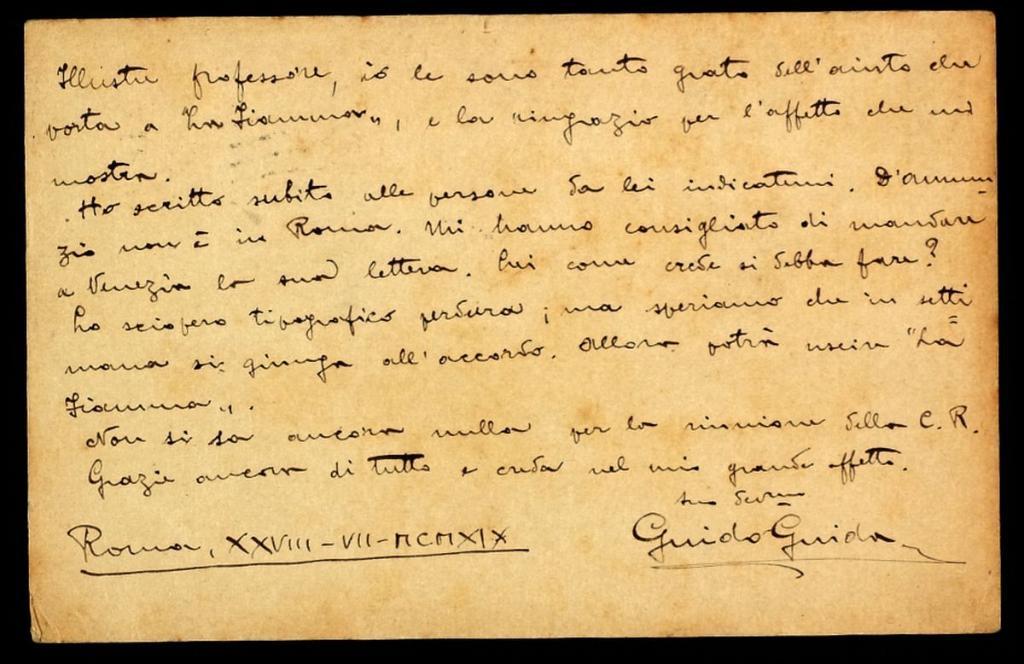 Illustre professore, io le sono tanto grato dell'aiuto che
porta a "La Fiamma„, e la ringrazio per l'affetto che mi
mostra.
Ho scritto subito alle persone da lei indicatemi. D'Annun=
zio non è in Roma. Mi hanno consigliato di mandare
a Venezia la sua lettera. Lei come crede si debba fare?
Lo sciopero tipografico perdura; ma speriamo che in setti=
mana si giunga all'accordo. Allora potrà uscire "La
Fiamma„.
Non si sa ancora nulla per la riunione della C. R.
Grazie ancora di tutto e creda nel mio grande affetto.
suo dev.mo
Roma, XXVIII-VII-MCMXIX Guido Guida